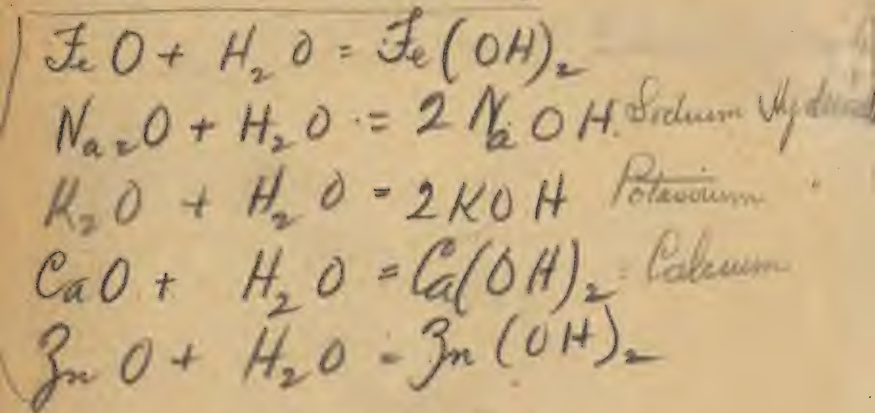 FeO + H₂O = Fe(OH)₂
Na₂O + H₂O = 2NaOH. Sodium
K₂O + H₂O = 2KOH Potassium "
CaO + H₂O = Ca(OH)₂ Calcium
ZnO + H₂O = Zn(OH)₂